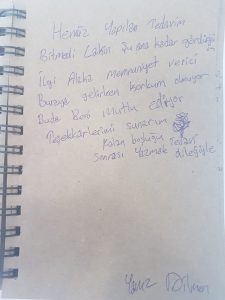 Henüz Yapılan Tedavim
Bitmedi Lakin Şu ana kadar gördüğüm
İlgi Alaka memnuniyet verici
Buraya gelirken korkum olmuyor
Buda Beni Mutlu Ediyor
Teşekkürlerimi sunarım
Kalan boşluğu Tedavi
Sonrası Yazmak dileğiyle
Yavuz